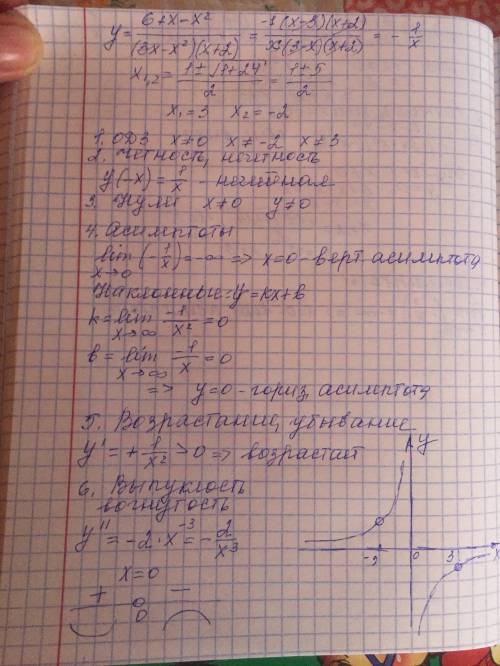 y = (6+x-x²)/((3x-x²)(x+2)) = -1(x-3)(x+2)/(x(3-x)(x+2)) = -1/x
x₁,₂ = (1±√(1+24))/2 = (1±5)/2
x₁=3 x₂=-2
1. ОДЗ x≠0 x≠-2 x≠3
2. Четность, нечетность
y(-x) = 1/x - нечетная
3. Нули x≠0 y≠0
4. Асимптоты
lim x→0 (-1/x) = -∞ => x=0 - верт асимптота
Наклонные: y=kx+b
k = lim x→∞ -1/x² = 0
b = lim x→∞ -1/x = 0
=> y=0 - гориз. асимптота
5. Возрастание, убывание
y' = + 1/x² > 0 => возрастает
6. Выпуклость
вогнутость
y'' = -2·x⁻³ = -2/x³
x=0
+ -
0
y
-2 0 3 x